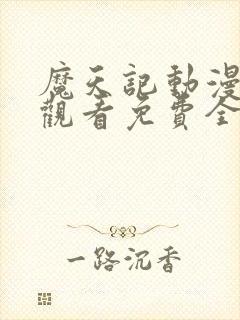 魔天記動漫
觀看免費全
一路沉香